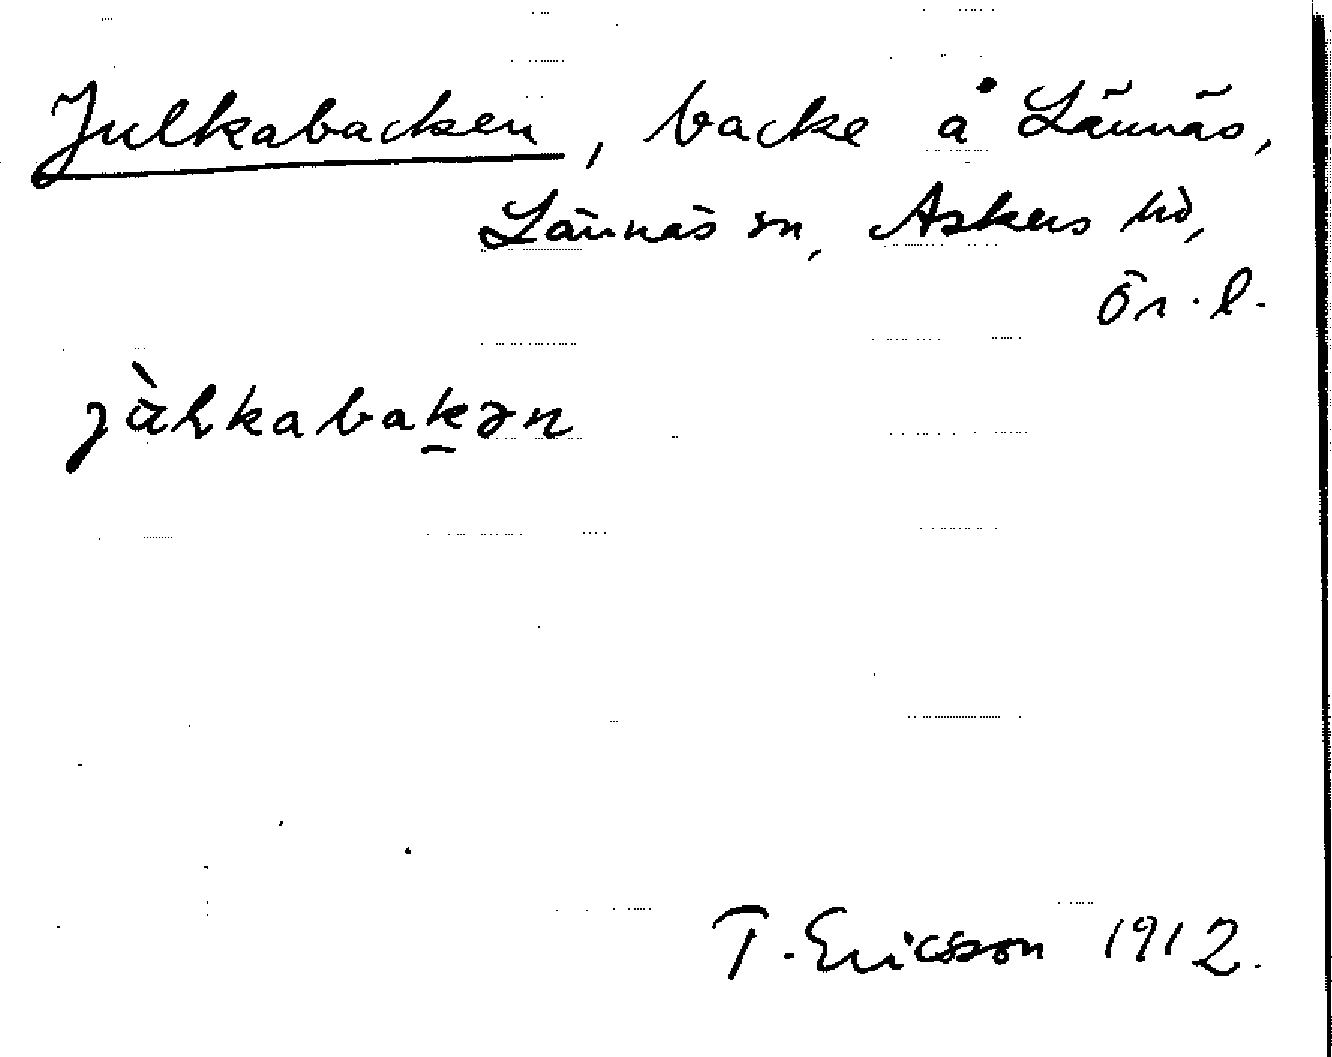 Julkabacken, backe å Lännäs,
Lännäs sn, Askers hd,
Ör. l.
T. Ericson 1912.